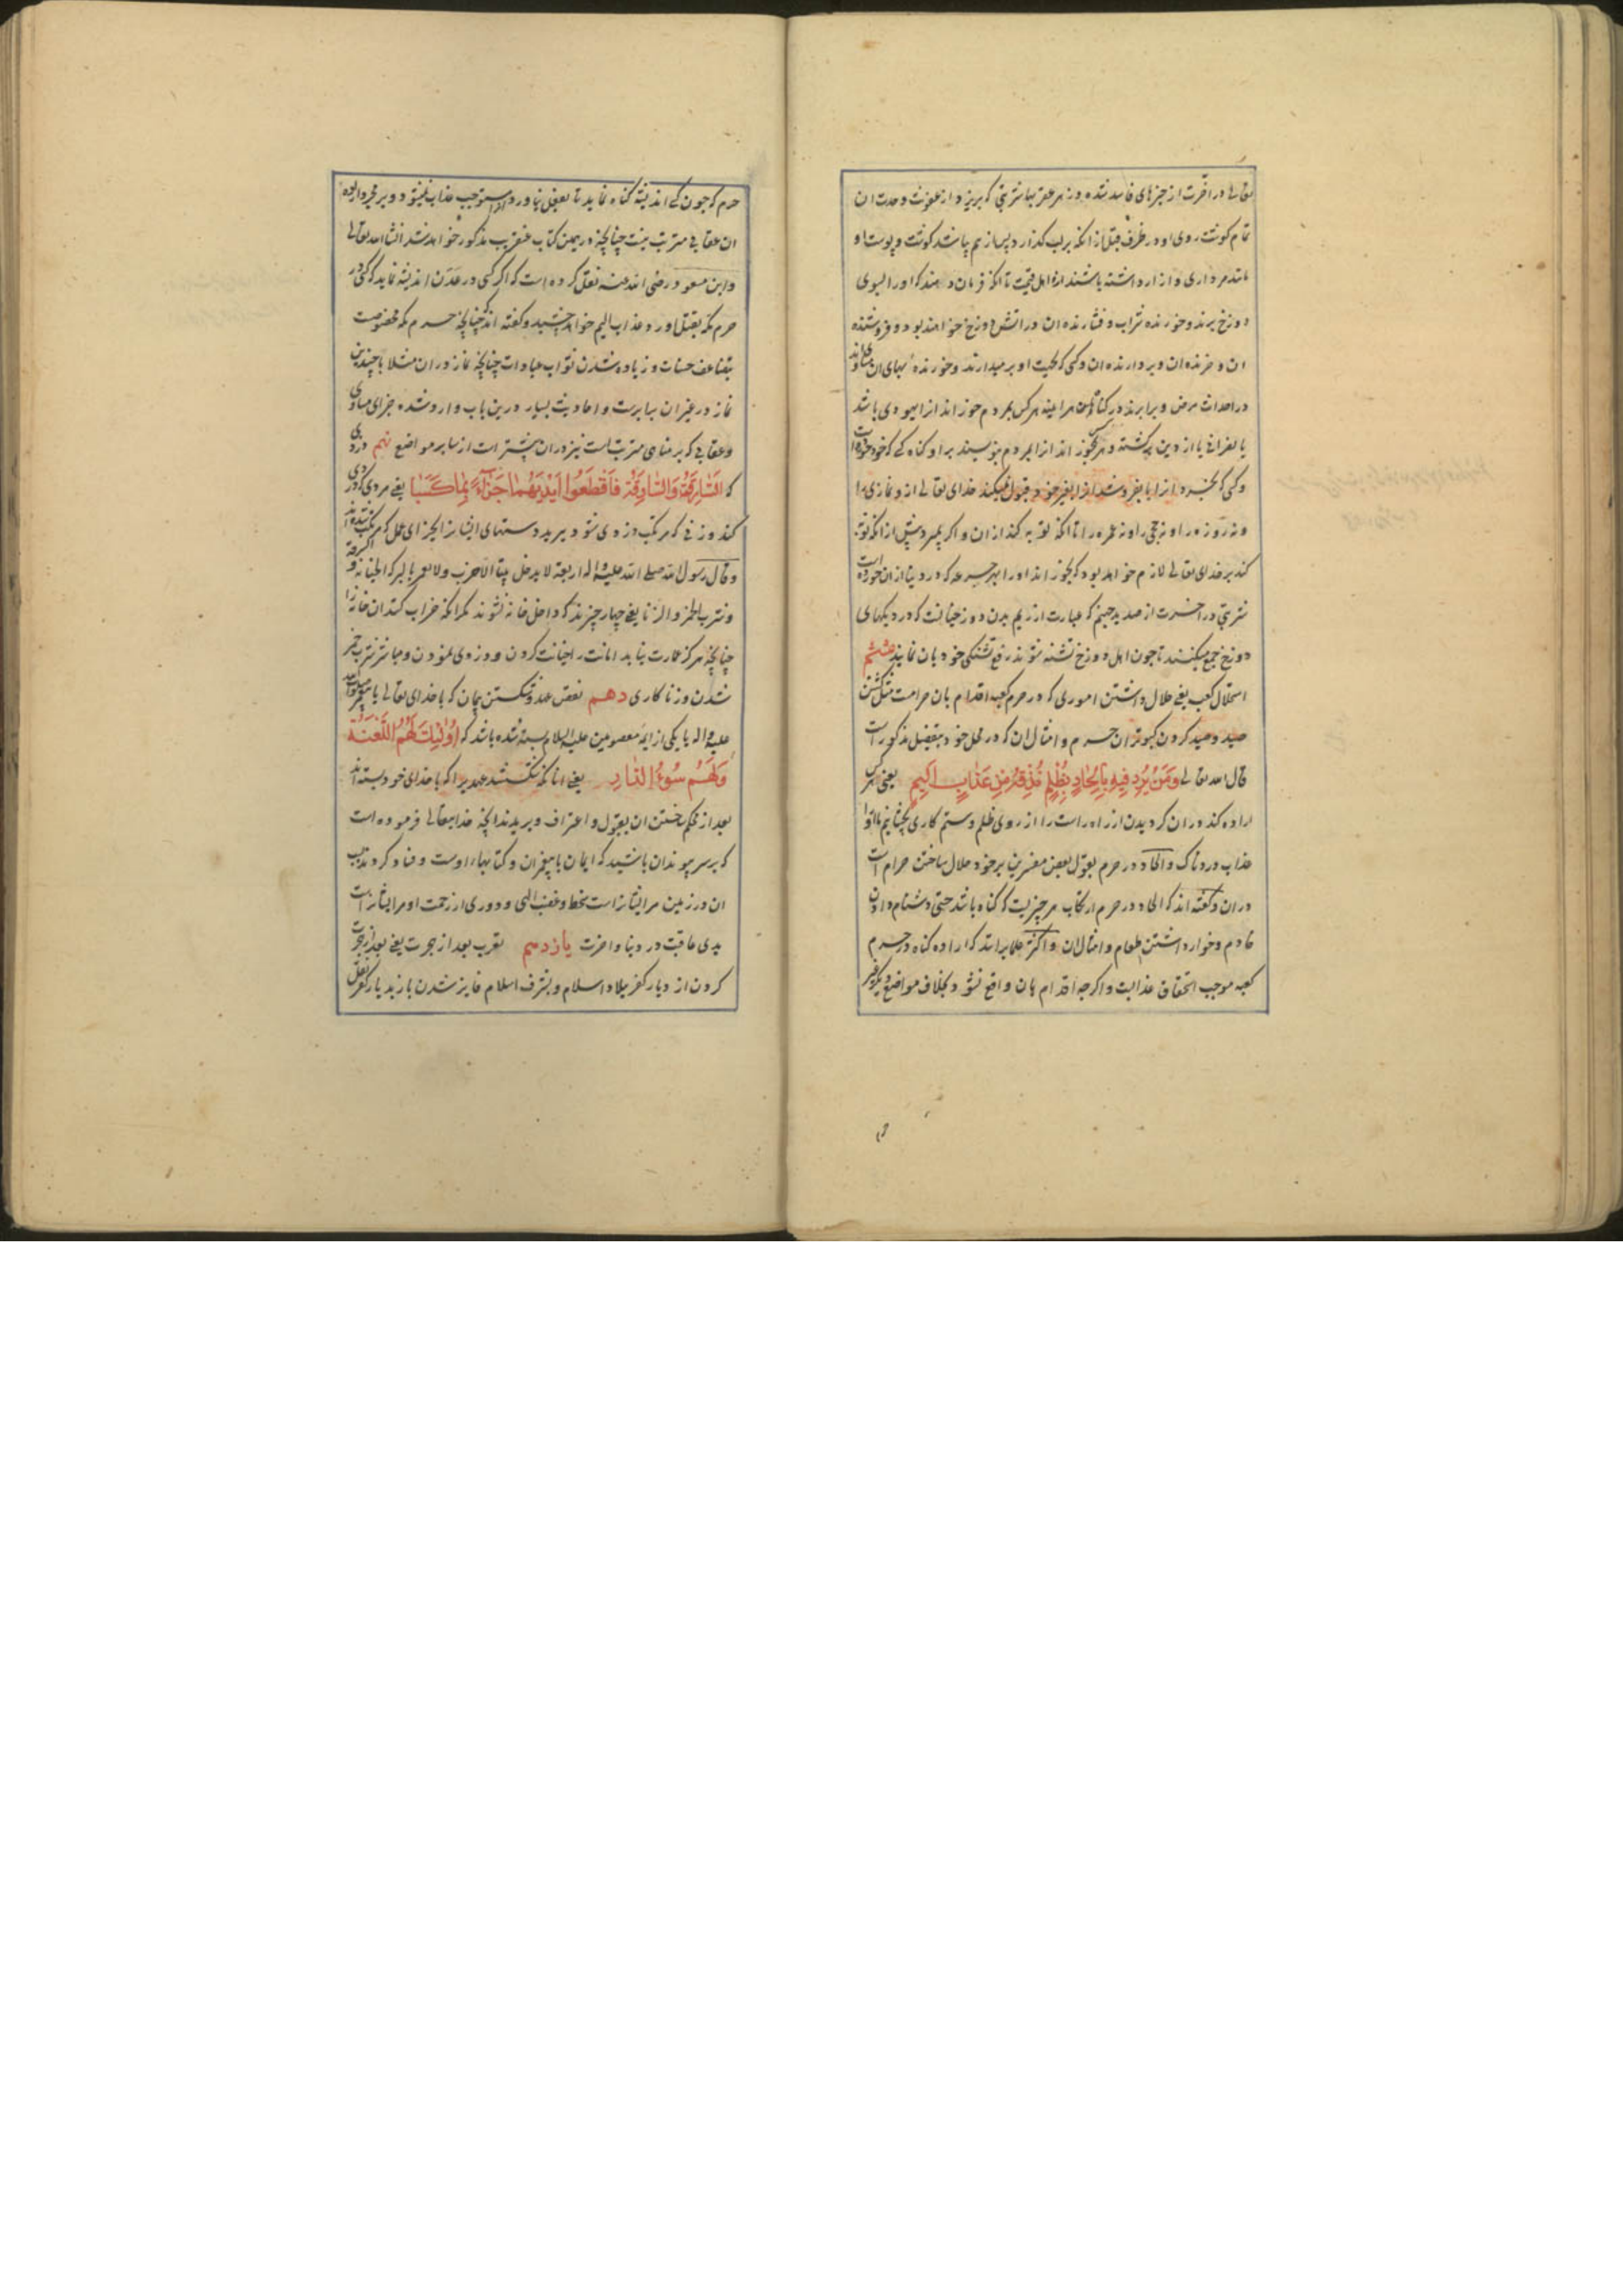 تعالی در آخرت از چیزهای فاسد شده و زهر عقربها شربتی که بریزد از عفونت و حدت ان
تمام کوشت روی او در ظرف قبل از انکه بر لب کذارد پس از هم پاشد کوشت و پوست او
مانند مرداری و ازار داشته باشند ازو اهل قیمت تا انکه فرمان دهند که او را بسوی
دوزخ برند و خورنده شراب و فشارنده ان در اتش دوزخ خواهند بود و فروشنده
ان و خرنده ان و بردارنده ان و کسی که بجهت او بر میدارند و خورنده بهای ان مساوی‌اند
در احداث مرض و برابرند در کناه ان هر اینه هر کس بمردم خوراند ازا یهودی باشد
یا نصرانی یا از دین برکشته و هر کس بخوراند ازا بمردم بنویسند بر او کناه کسی که خود خورده است
و کسی که بخرد ازا یا بفروشد ازا بغیر خود قبول نمیکند خدای تعالی ازو نمازی را
و نه روزه را و نه حجی را و نه عمره را تا انکه توبه کند از ان و اکر بمیرد پیش از انکه توبه
کند بر خدای تعالی لازم خواهد بود که بخوراند او را بهر جرعه که در دنیا از ان خورده است
شربتی در اخرت از صدید جهنم که عبارت از ریم بدن دوزخیانست که در دیکهای
دوزخ جمع میکنند تا چون اهل دوزخ تشنه شوند رفع تشنکی خود بان نمایند ششم
استحلال کعبه یعنی حلال داشتن اموری که در حرم کعبه اقدام بان حرامست مثل کشتن
صید و صید کردن کبوتران حرم و امثال ان که در محل خود بتفصیل مذکور است
قال الله تعالی وَمَنْ يُرِدْ فِيهِ بِاِلْحَادٍ بِظُلْمٍ نُذِقْهُ مِنْ عَذَابٍ اَلِيمٍ یعنی هر کس
اراده کند در ان کردیدن از راه راست را از روی ظلم و ستم کاری بچشانیم ما او را
عذاب دردناک و الحاد در حرم بقول بعضی مفسرین بر خود حلال ساختن حرام است
در ان و کفته اند که الحاد در حرم ارتکاب هر چیزیست که کناه باشد حتی دشنام دادن
خادم و خوار داشتن طعام و امثال ان و اکثر علما برانند که اراده کناه در حرم
کعبه موجب استحقاق عذابست و اکرچه اقدام بان واقع نشود بخلاف مواضع دیکر غیر
حرم که چون کسی اندیشه کناه نماید تا بفعل نیاورد ازا مستوجب عذاب نمیشود و بر مجرد اراده
ان عقابی مترتب نیست چنانچه در همین کتاب عنقریب مذکور خواهد شد انشا الله تعالی
و ابن مسعود رضی الله عنه نقل کرده است که اکر کسی در عدن اندیشه نماید که کسی در
حرم مکه بقتل اورد عذاب الیم خواهد چشید و کفته اند چنانچه حرم مکه مخصوصست
بتضاعف حسنات و زیاده شدن ثواب عبادات چنانچه نماز در ان مثلا با چندین
نماز در غیر ان برابرست و احادیث بسیار درین باب وارد شده جزای مساوی
و عقابی که بر مناهی مترتب است نیز در ان بیشتر است از سایر مواضع نهم دزدی
که اَلسَّارِقُ وَالسَّارِقَةُ فَاقْطَعُوا اَيْدِيَهُمَا جَزَاءً بِمَا كَسَبَا یعنی مردی که دزدی
کند و زنی که مرتکب دزدی شود ببرید دستهای ایشان را بجزای عمل که مرتکب شده اند
و قال رسول الله صلی الله علیه و اله اربعة لا یدخل بیتا الا خرب و لا یعمر بالبرکة الخیانة و السرقة
و شرب الخمر و الزنا یعنی چهار چیزند که داخل خانه نشوند مکر انکه خراب کند ان خانه را
چنانچه هرکز عمارت نیابد امانت را خیانت کردن و دزدی نمودن و مباشر شرب خمر
شدن و زناکاری دهم نقض عهد و شکستن پیمان که با خدای تعالی یا پیغمبر صلوات الله
علیه و اله یا یکی از ایمه معصومین علیه السلام بسته شده باشد که اُولٰئِكَ لَهُمُ اللَّعْنَةُ
وَلَهُمْ سُوءُ الدَّارِ یعنی انانکه شکستند عهدی را که با خدای خود بسته اند
بعد از محکم ساختن ان بقبول و اعتراف و بریدند انچه خدایتعالی فرموده است
که بر سر پیوند ان باشید که ایمان با پیغمبران و کتابهاء اوست و فساد کردند بسبب
ان در زمین مر ایشانراست سخط و غضب الهی و دوری از رحمت او مر ایشانراست
بدی عاقبت در دنیا و اخرت یازدهم تعرب بعد از هجرت یعنی بعد از هجرت
کردن از دیار کفر ببلاد اسلام و بشرف اسلام فایز شدن باز بدیار کفر نقل